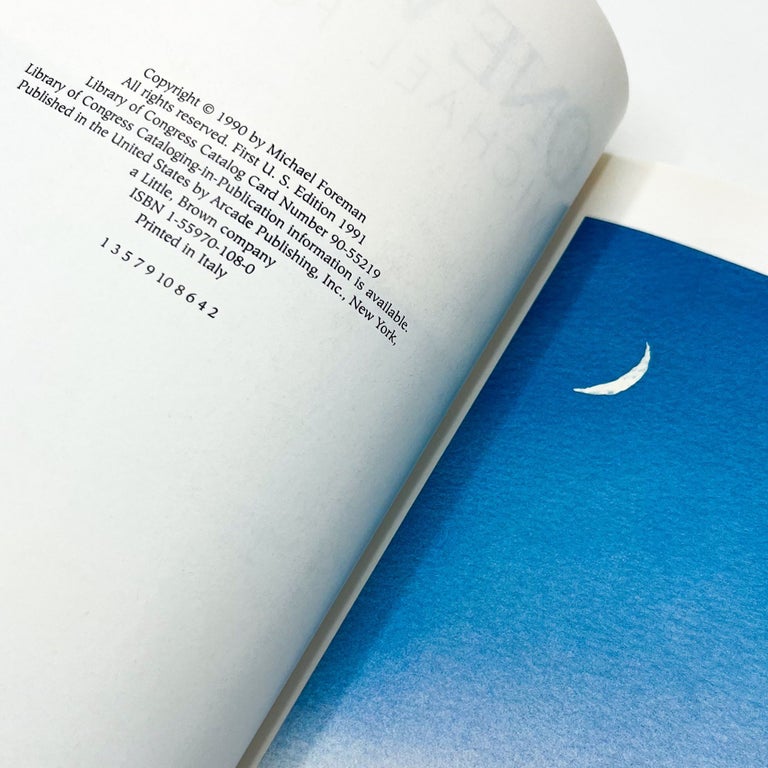 Copyright © 1990 by Michael Foreman
All rights reserved. First U. S. Edition 1991
Library of Congress Catalog Card Number 90-55219
Library of Congress Cataloging-in-Publication information is available.
Published in the United States by Arcade Publishing, Inc., New York,
a Little, Brown company
ISBN 1-55970-108-0
Printed in Italy
1 3 5 7 9 10 8 6 4 2